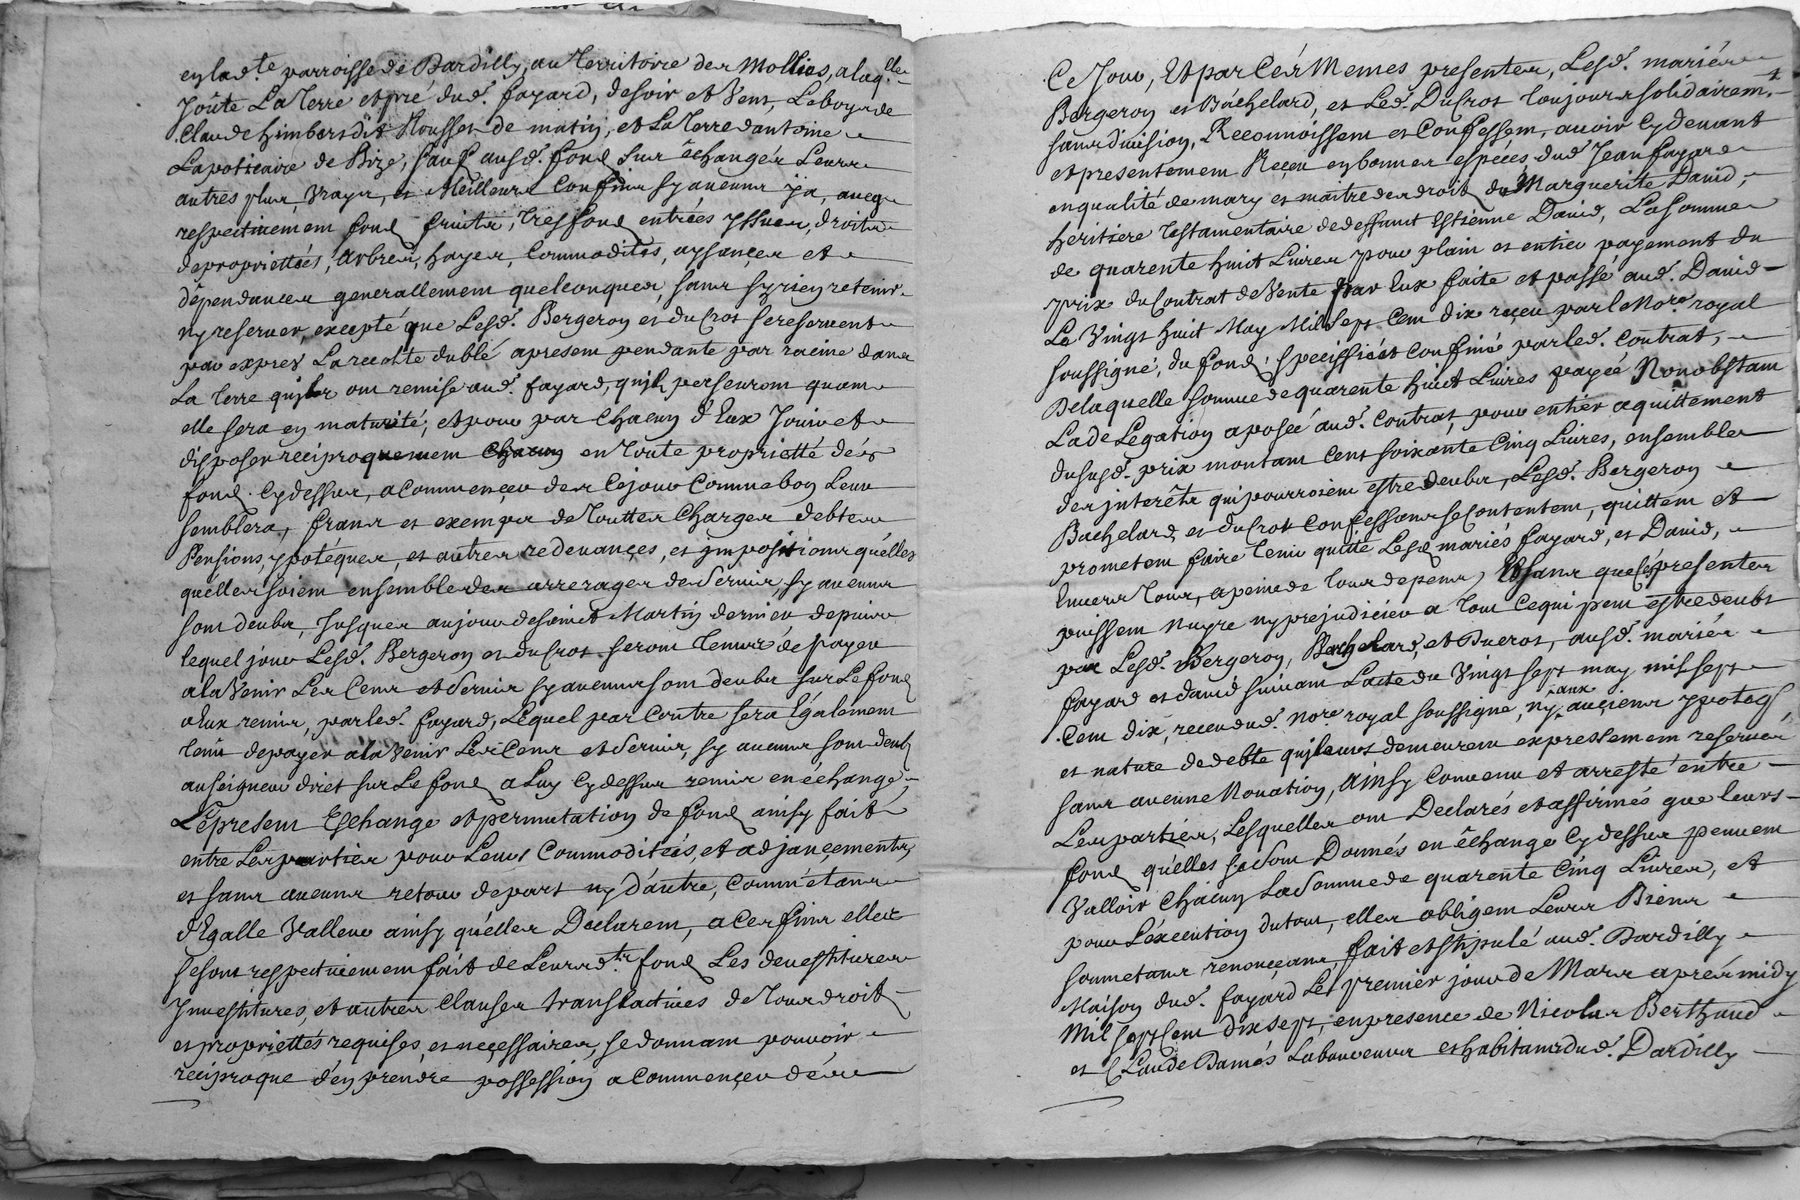 en lad.te parroisse de Dardilly, au Territoire des Mollias, a laq.lle
Joûte La Terre et pré dud. fayard, de soir et Vent, Le boys de
Claude himbert dit Rousset de matin, et La Terre d'antoine
Lapoticaire de Bize, sauf ausd. fond sur êchangés Leurs
autres plus Vrays, et Meilleurs Confins sy aucuns y a, avecq
respectivement fond fruits, tresfond entrées yssues, droits
de propriettés, arbres, hayes, Commodités, aysançes et
dépendances generallement quelconques, sans sy rien retenir
ny reserver, excepté que Lesd. Bergeron et duCrot se reservent
par exprès La recolte du blé apresent pendante par racine dans
La Terre quils ont remise aud. fayard, quils perseuront quant
elle sera en maturité, et pour par Chacun d'Eux Jouir et
disposer reciproquement en Toute proprietté dés
fond Cydessus, a Commençer des Cejour Comme bon Leur
semblera, francs et exempts de Touttes Charges debtes
Pensions, ypotéques, et autres redevançes, et jmpositions quélles
quélles soient ensemble des arrerages de servis, sy aucuns
sont deubs, Jusques aujour de saint Martin dernier depuis
lequel jour Lesd. Bergeron et duCrot seront Tenus de payer
ala Venir Les Cens et servis sy aucuns sont deubs sur Le fond
a Eux remis, par led. fayard, Lequel par Contre sera Également
tenu de payer ala Venir Les Cens et servis, sy aucuns sont deubs
au seigneur diret sur Le fond a Luy Cydessus remis en échange,
Le présent Eschange et permutation de fond ainsy fait
entre Les parties pour Leurs Commoditéés, et adjançements,
et sans aucuns retour de part ny d'autre, Comme étants
d'Egalle Valleur ainsy quélles Declarent, a Ces fins elles
se sont respectivement fait de Leursd.ts fond Les devestitures
Jnvestitures, et autres Clauses translatives de Tous droit
et propriettés requises, et neçessaires, se donnant pouvoir
reciproque d'en prendre possession a Commençer dés
Ce Jour, Et par Cés Memes presentes, Lesd. mariés
Bergeron et Bachelard, et Led. DuCrot Toujours solidairemt.
sans division, Reconnoissent et Confessent, avoir Cy devant
et presentement Reçeu en bonnes espéces dud. Jean fayard
en qualité de mary et maitre des droit de Marguerite David,
héritiere Testamentaire de deffunt Estienne David, La somme
de quarente huit Livres pour plain et entier payement du
prix du Contrat de Vente par Eux faite et passé aud. David
Le Vingt huit May Mil sept Cent dix reçeu par le No.re royal
soussigné, du fond speciffié et Confiné par led. Contrat,
De laquelle somme de quarente huit Livres payée Nonobstant
La deLegation aposée aud. Contrat, pour entier aquittement
du susd. prix montant Cent soixante Cinq Livres, ensemble
des interêts qui pourroient estre deubs, Lesd. Bergeron
Bachelard et duCrot Confessants se Contentent, quittent et
prometent faire Tenir quitte Lesd mariés fayard, et David,
Envers Tous, a peine de Tous depens, Et sans que Cés presentes
puissent Nuyre ny prejudicier a Tout Ce qui peut estre deubt
par Lesd. Bergeron, Bachelard, et Ducrot, ausd. mariés
fayard et david suivant L'acte du Vingt sept may mil sept
Cent dix, recu dud. No.re royal soussigné, ny aux ançiens ypoteq
et nature de debte quj leurs demeurent expressement reservés
sans aucune Novation, Ainsy Convenu et arresté entre
Les parties, Lesquelles ont Declarés et affirmés que leurs
fond qu'elles se sont Donnés en êchange Cydessus peuvent
Valloir Chacun La somme de quarente Cinq Livres, et
pour L'éxecution du tout, elles obligent Leurs Biens
soumetans renonçans fait et stipulé aud. Dardilly
Maison dud. fayard Le premier jour de Mars aprés midy
Mil sept Cent dix sept, en presence de Nicolas Berthaud
et Claude Damés Laboureurs et habitants dud. Dardilly